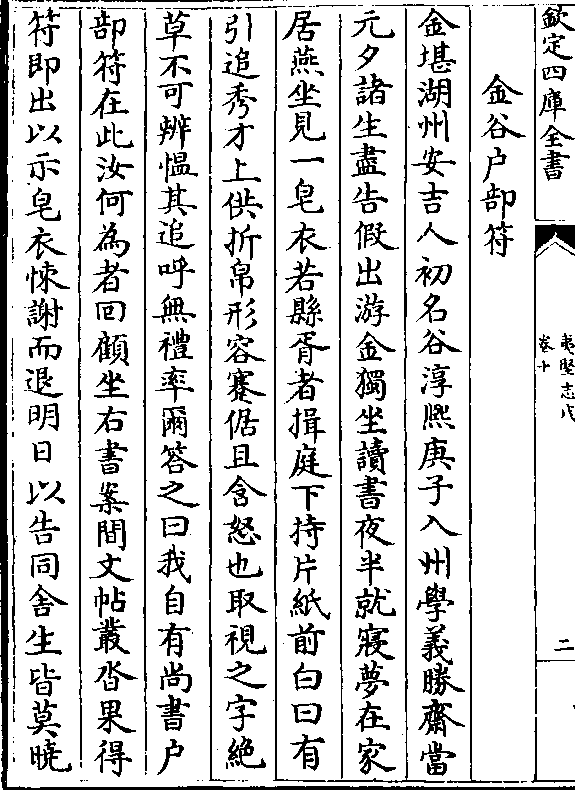 欽定四庫全書
夷堅志戊
卷十
二
金谷户部符
金堪湖州安吉人初名谷淳熙庚子入州學義勝齋當
元夕諸生盡告假出游金獨坐讀書夜半就寢夢在家
居燕坐見一皂衣若縣胥者揖庭下持片紙前白曰有
引追秀才上供折帛形容蹇倨且含怒也取視之字絶
草不可辨愠其追呼無禮率爾答之曰我自有尚書户
部符在此汝何為者回顧坐右書案間文帖叢沓果得
符即出以示皂衣悚謝而退明日以告同舍生皆莫曉